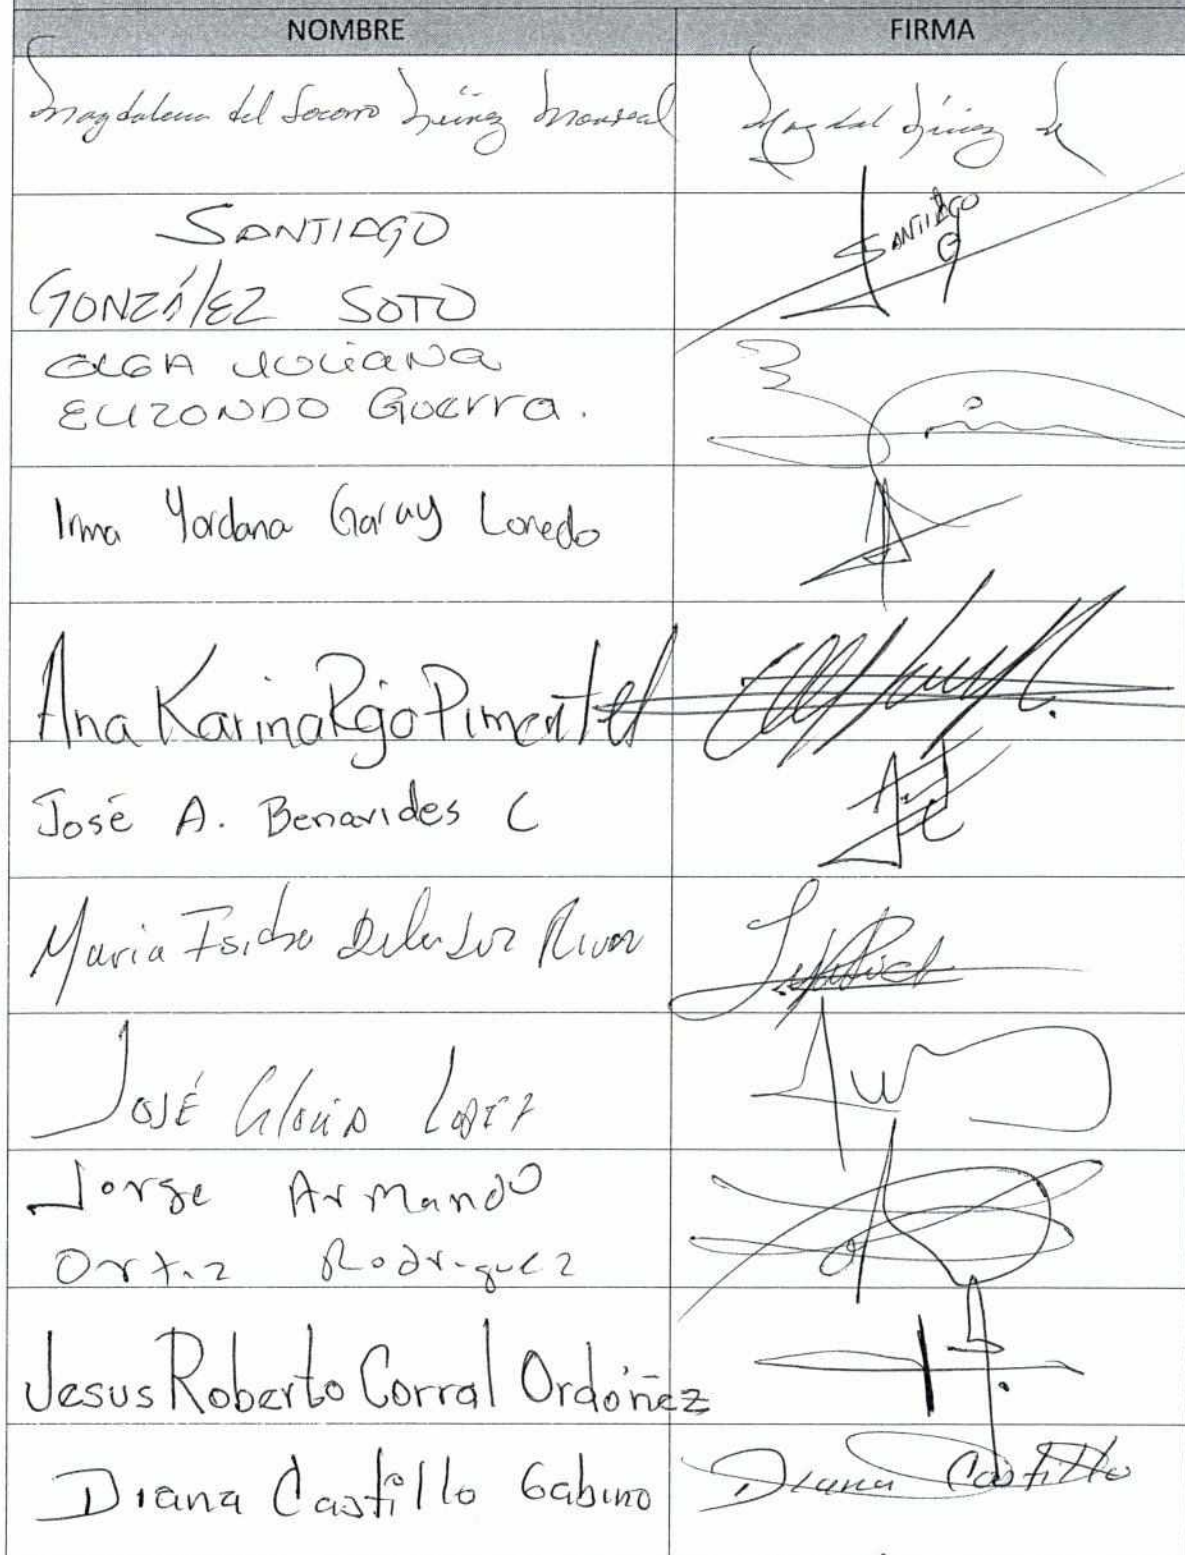 NOMBRE FIRMA
Magdalena del Socorro Núñez Monreal Magdal Núñez M
SANTIAGO SANTIAGO
GONZÁlEZ SOTO G
OLGA JULIANA
ELIZONDO Guerra.
Irma Yordana Garay Loredo
Ana Karina Rojo Pimentel
José A. Benavides C
Maria Isidra De la Luz Rivas
JOSÉ GloriA LopEz
Jorge ArmandO
Ortiz Rodriguez
Jesus Roberto Corral Ordóñez
Diana Castillo Gabino Diana Castillo